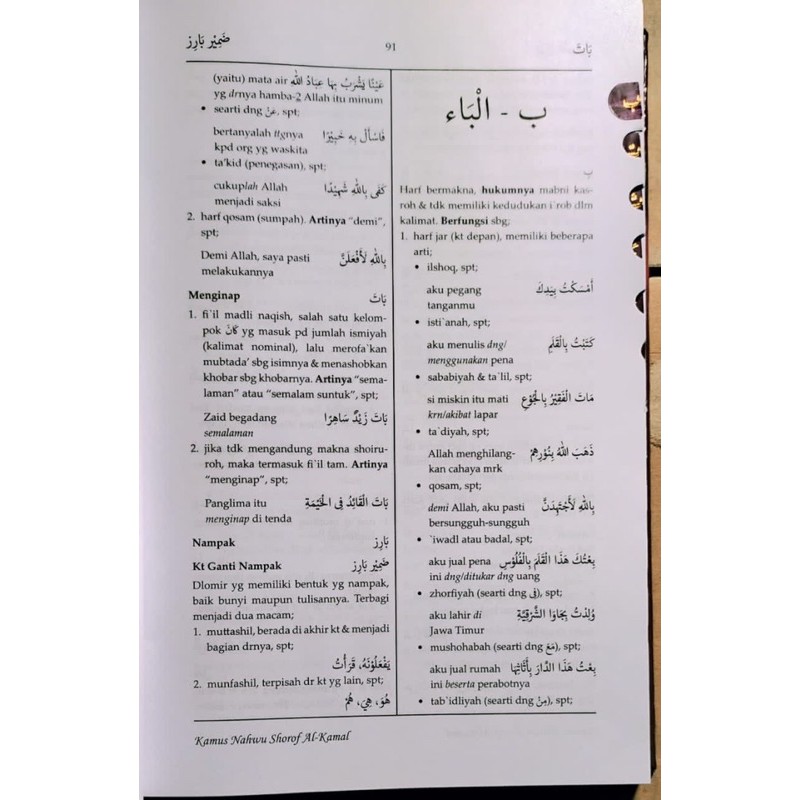 بَاتَ
91
ضَمِيْر بَارِز
ب - الْبَاء
بِ
Harf bermakna, hukumnya mabni kas-
roh & tdk memiliki kedudukan i`rob dlm
kalimat. Berfungsi sbg;
1. harf jar (kt depan), memiliki beberapa
arti;
• ilshoq, spt;
aku pegang أَمْسَكْتُ بِيَدِكَ
tanganmu
• isti`anah, spt;
aku menulis dng/ كَتَبْتُ بِالْقَلَمِ
menggunakan pena
• sababiyah & ta`lil, spt;
si miskin itu mati مَاتَ الْفَقِيْرُ بِالْجُوْعِ
krn/akibat lapar
• ta`diyah, spt;
Allah menghilang- ذَهَبَ اللهُ بِنُوْرِهِمْ
kan cahaya mrk
• qosam, spt;
demi Allah, aku pasti بِاللهِ لَأَجْتَهِدَنَّ
bersungguh-sungguh
• `iwadl atau badal, spt;
aku jual pena بِعْتُكَ هَذَا الْقَلَمَ بِالْفُلُوْسِ
ini dng/ditukar dng uang
• zhorfiyah (searti dng فِى), spt;
aku lahir di وُلِدْتُ بِجَاوَا الشَّرْقِيَّةِ
Jawa Timur
• mushohabah (searti dng مَعَ), spt;
aku jual rumah بِعْتُ هَذَا الدَّارَ بِأَثَاثِهَا
ini beserta perabotnya
• tab`idliyah (searti dng مِنْ), spt;
(yaitu) mata air عَيْنًا يَشْرَبُ بِهَا عِبَادُ اللهِ
yg drnya hamba-2 Allah itu minum
• searti dng عَنْ, spt;
bertanyalah ttgnya فَاسْأَلْ بِهِ خَبِيْرًا
kpd org yg waskita
• ta'kid (penegasan), spt;
cukuplah Allah كَفَى بِاللهِ شَهِيْدًا
menjadi saksi
2. harf qosam (sumpah). Artinya “demi”,
spt;
Demi Allah, saya pasti بِاللهِ لَأَفْعَلَنَّ
melakukannya
Menginap بَاتَ
1. fi`il madli naqish, salah satu kelom-
pok كَانَ yg masuk pd jumlah ismiyah
(kalimat nominal), lalu merofa`kan
mubtada' sbg isimnya & menashobkan
khobar sbg khobarnya. Artinya “sema-
laman” atau “semalam suntuk”, spt;
Zaid begadang بَاتَ زَيْدٌ سَاهِرًا
semalaman
2. jika tdk mengandung makna shoiru-
roh, maka termasuk fi`il tam. Artinya
“menginap”, spt;
Panglima itu بَاتَ الْقَائِدُ فِى الْخَيْمَةِ
menginap di tenda
Nampak بَارِز
Kt Ganti Nampak ضَمِيْر بَارِز
Dlomir yg memiliki bentuk yg nampak,
baik bunyi maupun tulisannya. Terbagi
menjadi dua macam;
1. muttashil, berada di akhir kt & menjadi
bagian drnya, spt;
يَفْعَلُوْنَهُ، قَرَأْتُ
2. munfashil, terpisah dr kt yg lain, spt;
هُوَ، هِيَ، هُمْ
Kamus Nahwu Shorof Al-Kamal